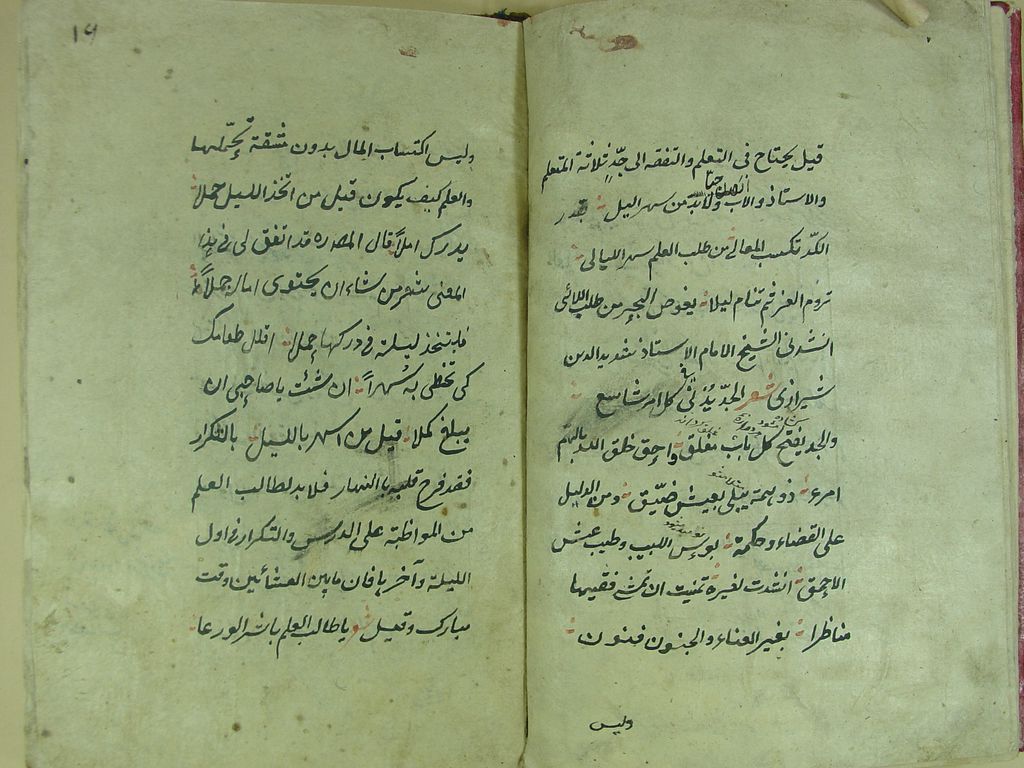 قيل يحتاج في التعلم والتفقه الى جدّ ثلاثة المتعلم
والاستاذ والاب ولابد من سهر الليل بقدر
الكدّ تكتسب المعالي من طلب العلم سهر الليالى
تروم العز ثم تنام ليلا يغوص البحر من طلب اللآلى
انشدنى الشيخ الامام الاستاذ شديد الدين
شيرازى شعر الجدّ يُدْنى كل امر شاسع
والجد يفتح كل باب مغلق واحق خلق الله بالهم
امرء ذو همة يبلى بعيش ضيّق ومن الدليل
على القضاء وحكمة بؤس اللبيب وطيب عيش
الاحمق انشدت لغيره تمنيت ان تمسى فقيها
مناظرا بغير العناء والجنون فنون
وليس
١٩
وليس اكتساب المال بدون مشقة تحمّلها
والعلم كيف يكون قيل من اتخذ الليل جملا
يدرك املا قال المصره قد اتفق لى فى هذا
المعنى شعر من شاء ان يحتوى اماله جملاً
فليتخذ ليلة فى دركها جملا اقلل طعامك
كى تحظى به سُهراً ان شئت يا صاحبى ان
يبلغ كملا قيل من اسهر بالليل بالتكرار
فقد فرح قلبه بالنهار فلا بد لطالب العلم
من المواظبة على الدرس والتكرار فى اول
الليلة وآخرها فان مابين العشائين وقت
مبارك وقيل شعر يا طالب العلم باشر الورعا